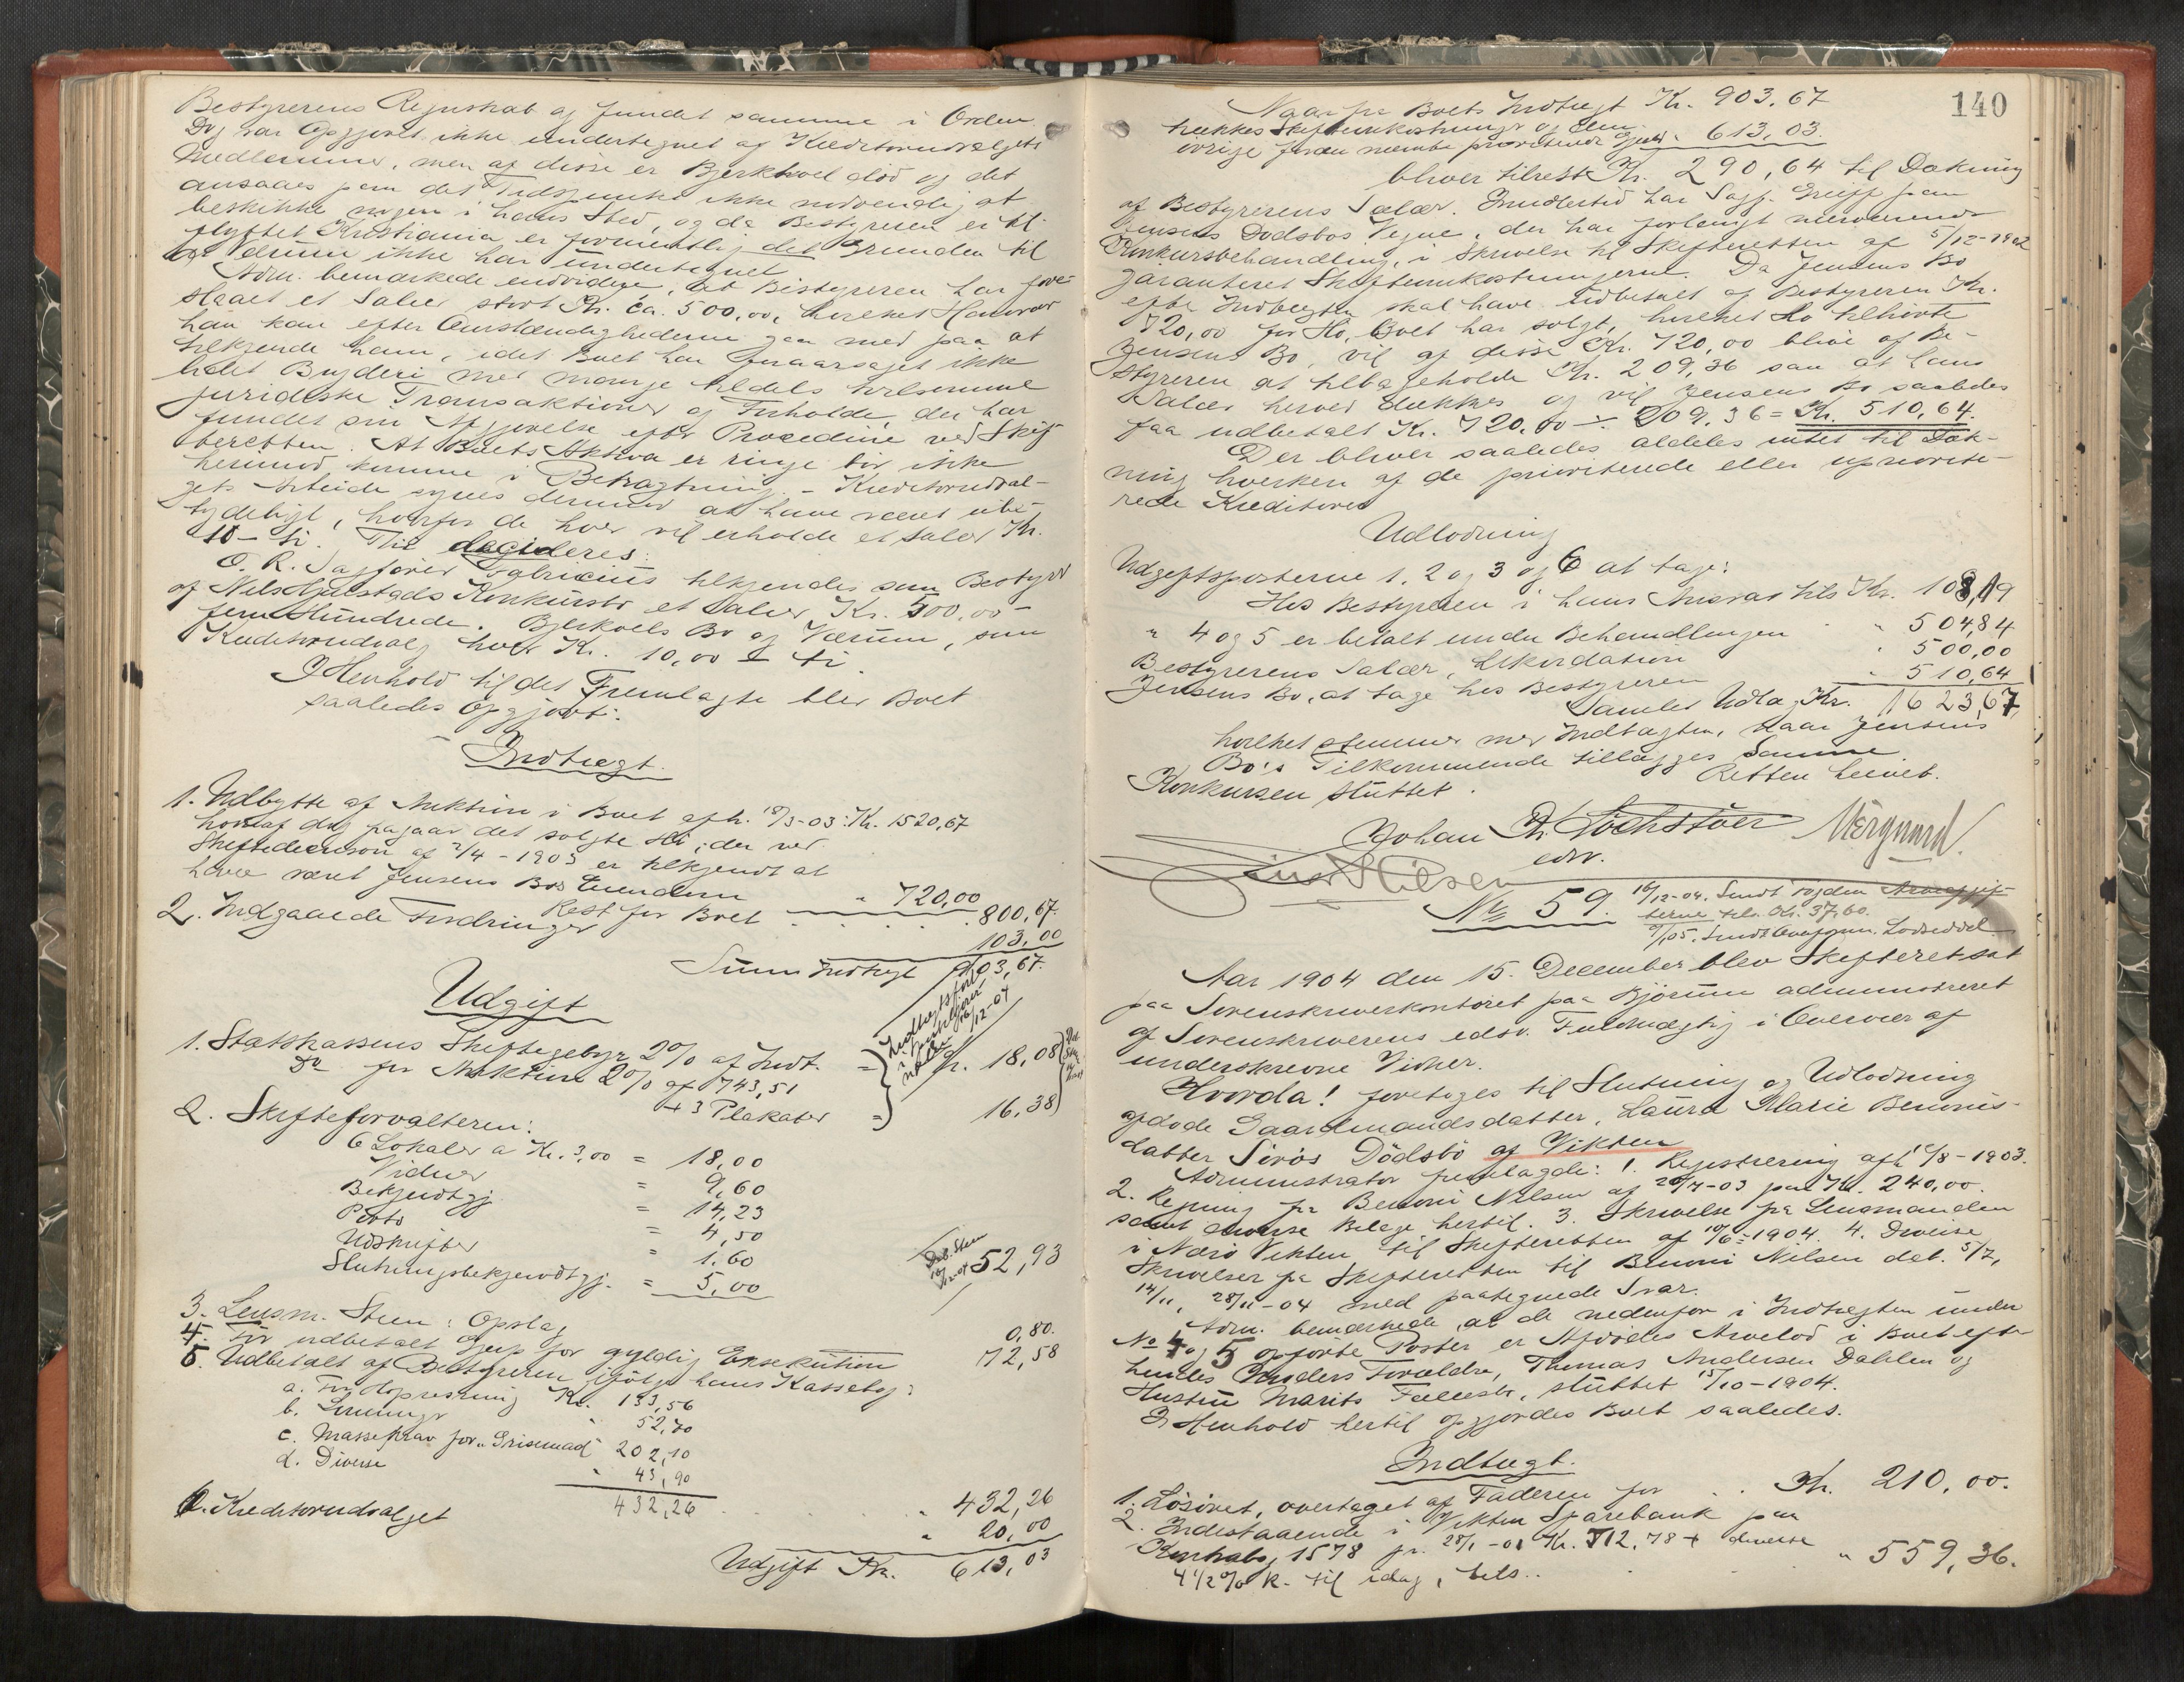 Bestyrerens Regnskab og fundet samme i Orden.
Dog var Opgjøret ikke undertegnet af Kreditorudvalgets
Medlemmer, men af disse er Bjerkhoel død og det
ansaaes paa det Tidspunkt ikke nødvendig at
beskikke nogen i hans Sted, og da Bestyreren er til-
flyttet Kristiania er formentlig det Grunden til
at Værum ikke har undertegnet
Adm. bemærkede endvidere, at Bestyreren har fore-
slaaet et Salær stort Kr. ca. 500,00, hvilket
han kan efter Omstændighederne gaa med paa at
tilkjende ham, idet Boet har foraarsaget ikke
lidet Bryderi med mange tildels
juridiske Transaktioner og Forholde, der har
fundet sin Afgjørelse efter Procedure ved Skif-
teretten. At Boets Aktiva er ringe bør ikke
herimod komme i Betragtning. - Kreditorudval-
gets Arbeide synes derimod at have været ube-
tydeligt, hvorfor de hver vil erholde et Salær Kr.
10 - ti. Thi decideres:
O. R. Sagfører Fabricius tilkjendes som Bestyrer
af Nils Hjulstads Konkursbo et Salær Kr. 500,00 -
fem Hundrede. Bjerkoels Bo og Værum, som
Kreditorudvalg hver Kr. 10,00 - ti
I Henhold til det Fremlagte blev Boet
saaledes opgjort:
Indtægt.
1. Udbytte af Auktion i Boet afh. 18/3-03: Kr. 1520,67
hvoraf dog fragaar det solgte Hø, der ved
Skiftedecision af 2/4-1903 er tilkjendt at
have været Jensens Bos Eiendom " 720,00
Rest for Boet 800,67.
2. Indgaaede Fordringer 103,00
Sum Indtægt 903,67.
Udgift
1. Statskassens Skiftegebyr 2% af Indt. = Kr. 18,08
Do for Auktion 2% af 743,51
+ 3 Plakater = 16,38
2. Skifteforvalteren:
6 Lokaler a Kr. 3,00 = 18,00
Vidner = 9,60
Bekjendtgj. = 14,23
Porto = 4,50
Udskrifter = 1,60
Slutningsbekjendtgj. = 5,00
52,93
3. Lensm. Steen: Opslag 0,80.
4. For udbetalt Gjeld for gyldig Exsekution 72,58
5. Udbetalt af Bestyreren ifølge hans Kassebog:
a. For Høpresning Kr. 133,56
b. 52,70
c. Massekrav for "Grisemad" 202,10
d. Diverse " 43,90
432,26 " 432,26
6. Kreditorudvalget " 20,00
Udgift Kr. 613,03
140
Naar fra Boets Indtægt Kr. 903,67
trækkes Skifteomkostninger og den
øvrige foran nævnte prioriterede Gjæld " 613,03.
bliver tilrest Kr. 290,64 til Dækning
af Bestyrerens Salær. Imidlertid har Sagf. Greiff paa
Jensens Dødsbos Vegne, der har forlangt nærværende
Konkursbehandling, i Skrivelse til Skifteretten af 5/12-1902
garanteret Skifteomkostningerne. Da Jensens Bo
efter Indtægten skal have udbetalt af Bestyreren Kr.
720,00 for Hø, Boet har solgt, hvilket Hø tilhørte
Jensens Bo, vil af disse Kr. 720,00 blive af Be-
styreren at tilbageholde Kr. 209,36 saa at hans
Salær herved dækkes og vil Jensens Bo saaledes
faa udbetalt Kr. 720,00 ÷ 209,36 = Kr. 510,64.
Der bliver saaledes aldeles intet til Dæk-
ning hverken af de prioriterede eller upriorite-
rede Kreditorer
Udlodning
Udgiftsposterne 1, 2 og 3 og 6 at tage:
Hos Bestyreren i hans Ansvar tils Kr. 108,19
" 4 og 5 er betalt under Behandlingen " 504,84
Bestyrerens Salær, Likvidation " 500,00
Jensens Bo, at tage hos Bestyreren " 510,64
Samlet Udlæg Kr. 1623,67,
hvilket stemmer med Indtægten, naar Jensens
Bo's Tilkommende tillægges Samme
Konkursen sluttet. Retten hævet.
Johan Th. Lochstöer Morguard.
edsv.
Jens Hilsen
No 59. 16/12-04. Sendt Fogden Arveafgif-
terne tils. Kr. 37,60.
9/1 05. Sendt Overform. Lodseddel
Aar 1904 den 15. December blev Skifteret sat
paa Sorenskriverkontoret paa Bjørum administreret
af Sorenskriverens edsv. Fuldmægtig i Overvær af
underskrevne Vidner.
Hvorda! foretoges til Slutning og Udlodning
afdøde Gaardmandsdatter, Laura Marie Benonis-
datter Sørøs Dødsbo af Vikten
Administrator fremlagde: 1. Registrering afh. 10/8-1903.
2. Regning fra Benoni Nilsen af 20/7-03 paa Kr. 240,00.
samt diverse Bilage hertil. 3. Skrivelse fra Lensmanden
i Nærø Vikten til Skifteretten af 10/6-1904. 4. Diverse
Skrivelser fra Skifteretten til Benoni Nilsen dat. 5/7,
14/11, 28/11-04 med paategnede Svar.
Adm. bemærkede, at de nedenfor i Indtægten under
No 4 og 5 opførte Poster er Afdødes Arvelod i Boet efter
hendes Forældre, Thomas Andersen Dahlen og
Hustru Marits Fællesbo, sluttet 15/10-1904.
I Henhold hertil opgjordes Boet saaledes.
Indtægt.
1. Løsøret, overtaget af Faderen for . . Kr. 210,00.
2. Indestaaende i Vikten Sparebank paa
Kontrabog 1578 pr. 28/1-01 Kr. 512,78 + diverse
4 1/2 % R. til idag, tils.. " 559,36.